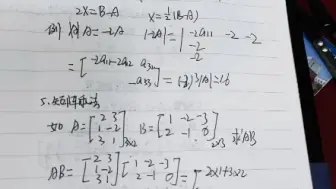 2X=B-A    X=½(B-A)
例  |A|=-2  |-2A|=| -2a₁₁ -2 -2
-2
-2
=[ -2a₁₁ -2a₁₂ a₃₂
a₃₃ ]=(-2)³|A|=16
5.矩阵乘法
如 A=[2 3
1 -2
3 1]3×2  B=[1 -2 -3
2 -1 0]2×3  求AB
AB=[2 3
1 -2
3 1][1 -2 -3
2 -1 0]=[2×1+3×2